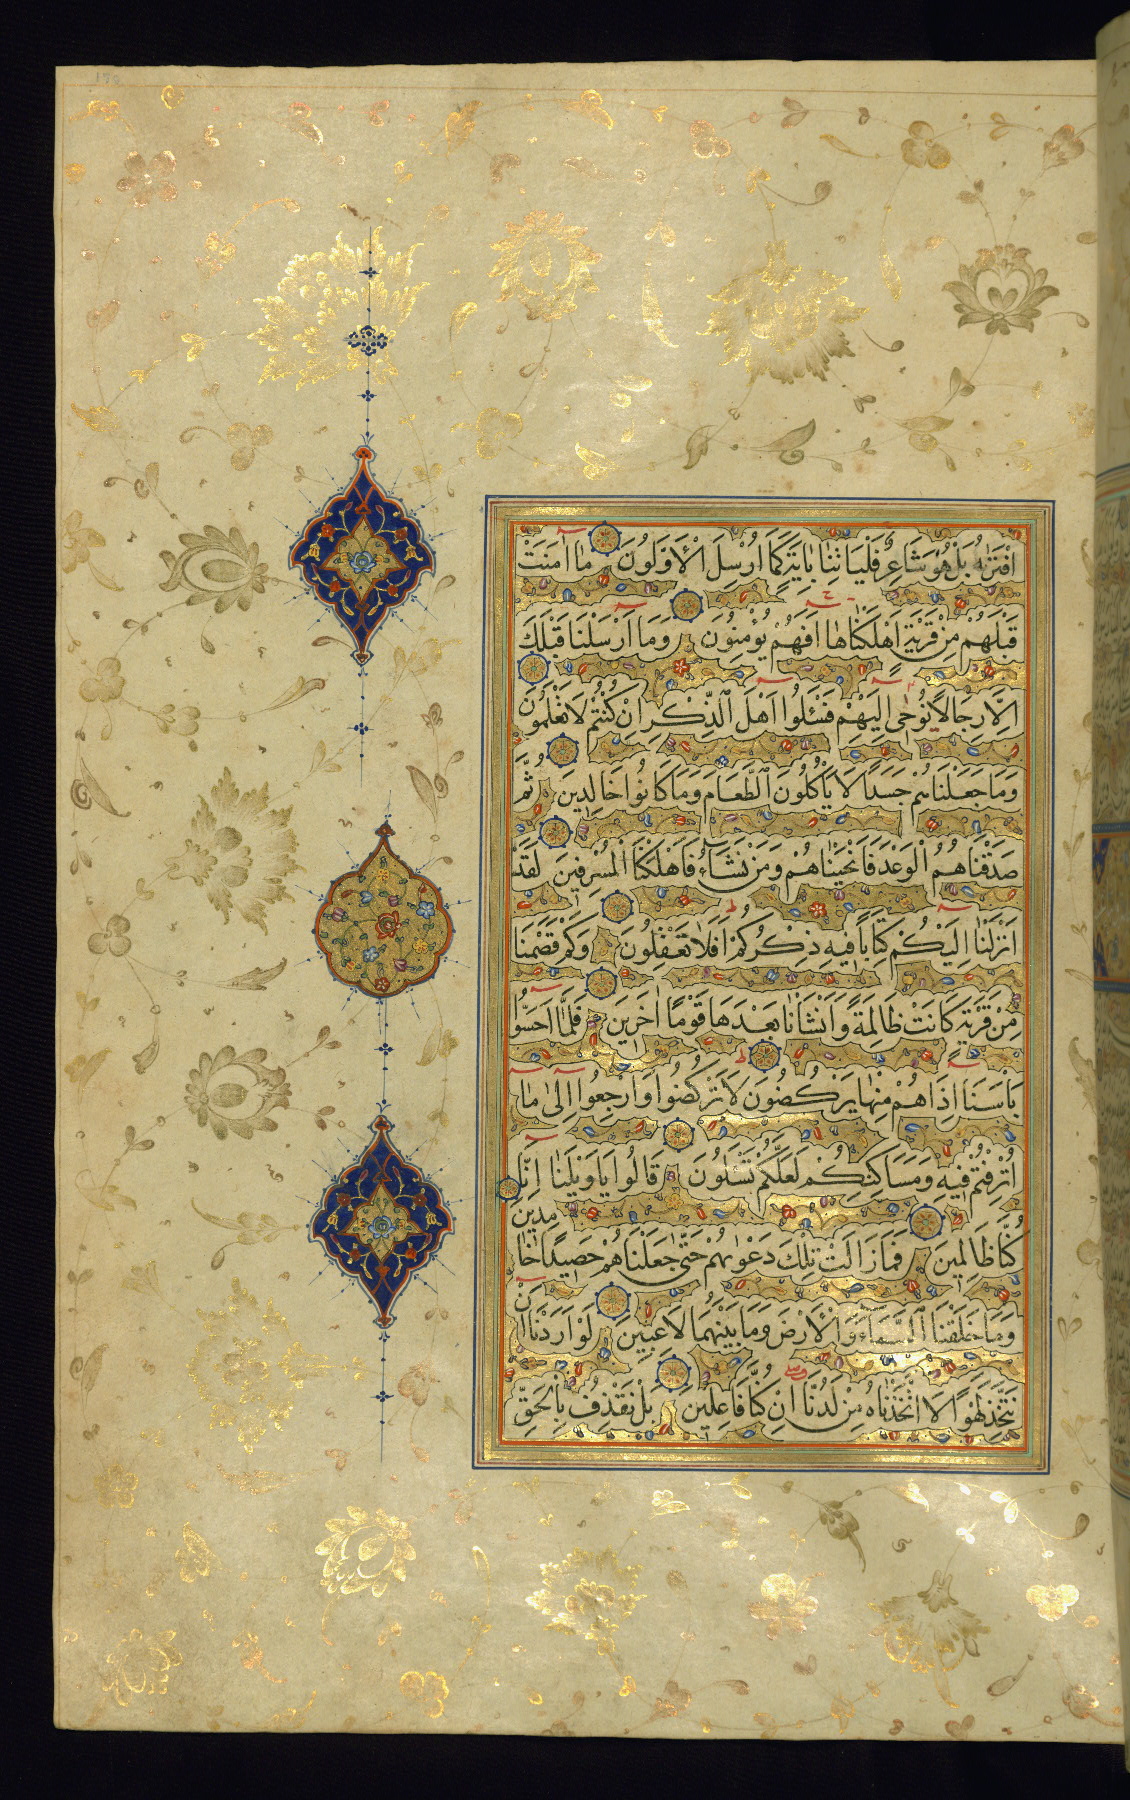 افْتَرٰيهُ بَلْ هُوَ شَاعِرٌ فَلْيَاْتِنَا بِاٰيَةٍ كَمَا اُرْسِلَ الْاَوَّلُونَ مَا اٰمَنَتْ
قَبْلَهُمْ مِنْ قَرْيَةٍ اَهْلَكْنَاهَا اَفَهُمْ يُؤْمِنُونَ وَمَا اَرْسَلْنَا قَبْلَكَ
اِلَّا رِجَالًا نُوحٰى اِلَيْهِمْ فَسْئَلُوا اَهْلَ الذِّكْرِ اِنْ كُنْتُمْ لَا تَعْلَمُونَ
وَمَا جَعَلْنَاهُمْ جَسَدًا لَا يَاْكُلُونَ الطَّعَامَ وَمَا كَانُوا خَالِدِينَ ثُمَّ
صَدَقْنَاهُمُ الْوَعْدَ فَاَنْجَيْنَاهُمْ وَمَنْ نَشَاءُ وَاَهْلَكْنَا الْمُسْرِفِينَ لَقَدْ
اَنْزَلْنَا اِلَيْكُمْ كِتَابًا فِيهِ ذِكْرُكُمْ اَفَلَا تَعْقِلُونَ وَكَمْ قَصَمْنَا
مِنْ قَرْيَةٍ كَانَتْ ظَالِمَةً وَاَنْشَاْنَا بَعْدَهَا قَوْمًا اٰخَرِينَ فَلَمَّا اَحَسُّوا
بَاْسَنَا اِذَا هُمْ مِنْهَا يَرْكُضُونَ لَا تَرْكُضُوا وَارْجِعُوا اِلٰى مَا
اُتْرِفْتُمْ فِيهِ وَمَسَاكِنِكُمْ لَعَلَّكُمْ تُسْئَلُونَ قَالُوا يَا وَيْلَنَا اِنَّا
كُنَّا ظَالِمِينَ فَمَا زَالَتْ تِلْكَ دَعْوٰيهُمْ حَتّٰى جَعَلْنَاهُمْ حَصِيدًا خَامِدِينَ
وَمَا خَلَقْنَا السَّمَاءَ وَالْاَرْضَ وَمَا بَيْنَهُمَا لَاعِبِينَ لَوْ اَرَدْنَا اَنْ
نَتَّخِذَ لَهْوًا لَاتَّخَذْنَاهُ مِنْ لَدُنَّا اِنْ كُنَّا فَاعِلِينَ بَلْ نَقْذِفُ بِالْحَقِّ